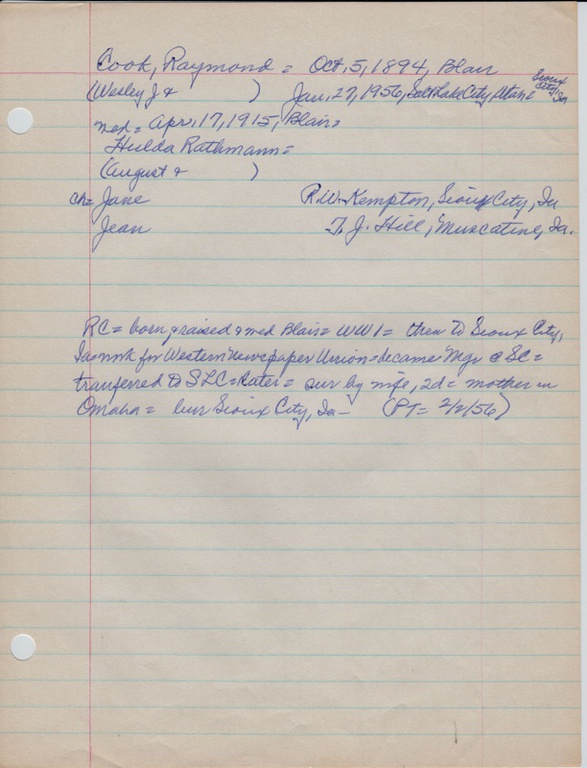 Cook, Raymond = Oct. 5, 1894, Blair
(Wesley J & ) Jan. 27, 1956, Salt Lake City, Utah = Sioux City, Ia
med = Apr. 17, 1915, Blair =
Hulda Rathmann =
(August & )
ch = Jane R.W. Kempton, Sioux City, Ia
Jean T. J. Hill, Muscatine, Ia.
RC = born & raised & med Blair = WW 1 = then to Sioux City,
Ia = work for Western Newspaper Union = became Mgr @ SC =
tranferred to SLC = Rater = sur by wife, 2d = mother in
Omaha = bur Sioux City, Ia - (PT = 2/2/56)